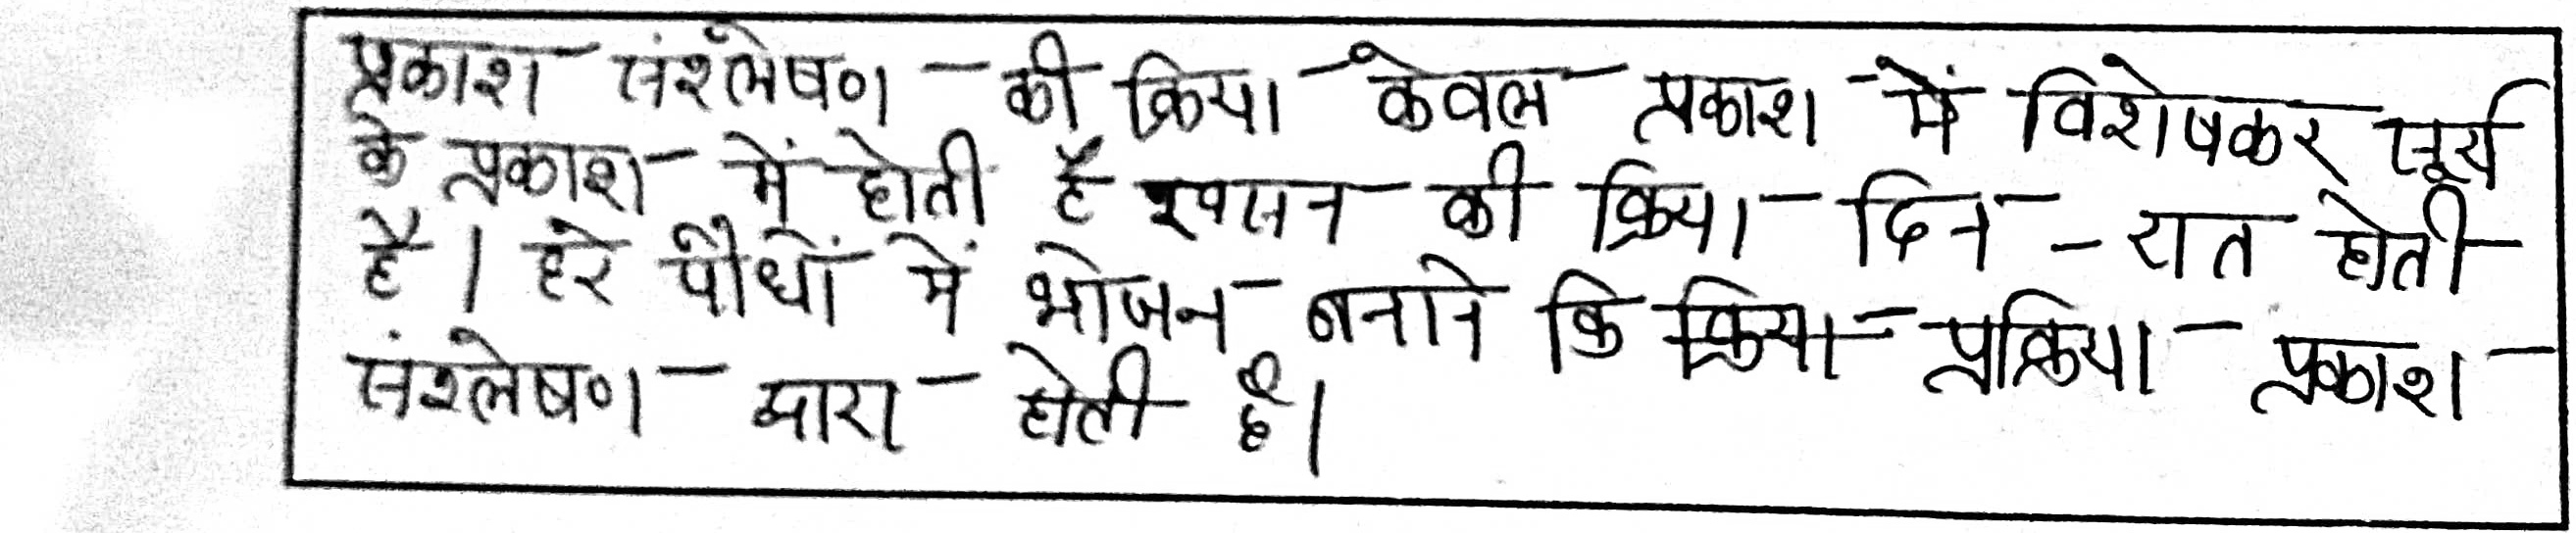 प्रकाश संश्लेषण की क्रिया केवल प्रकाश में विशेषकर सूर्य
के प्रकाश में होती है श्वसन की क्रिया दिन - रात होती
है। हरे पौधों में भोजन बनाने कि क्रिया प्रक्रिया प्रकाश
संश्लेषण द्वारा होती है।